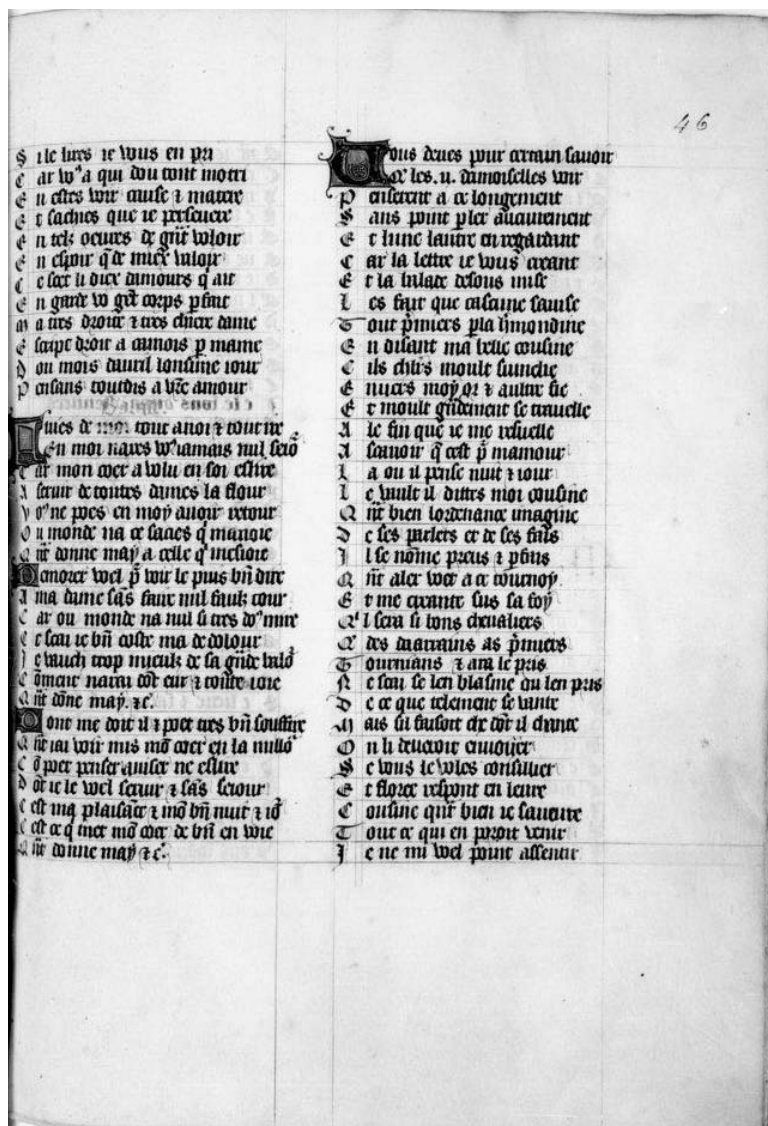 46
S i le lires ie vous en pri
C ar vo a qui dou tout motri
E n estes voir cause & matere
E t sachies que ie perseuere
E n telz oeures de grant voloir
E n espoir q de mieux valoir
C e scet li diex damours q ait
E n garde vo corps pfait
M a tres droite & tres chiere dame
E script droit a camois p mame
D ou mois dauril lonsime iour
P ensans toutdis a vre amour
de moi tout anoi & tout ire
En moi nares iamais nul
C ar mon coer a volu en soi eslire
A seruir de toutes dames la flour
ne poes en moy auoir retour
O u monde na ce sacies q
Q nt donne may a celle q
Demorer voel p voir le puis bn dire
A ma dame sas faire nul faulz tour
C ar ou monde na nul si tres mire
C e scai ie bn coste ma dolour
I e vauch trop mieulz de sa gride
C oment narai dot eur & toute ioie
Q nt done may. & c.
Dont me doit il & poet tres bn souffire
Q nt iai voir mis mo coer en la millo
C o poet penser auiser ne eslire
D ot ie le voel seruir & sas seiour
C est ma plaisace & mo bn nuit & io
C est ce q met mo coer de bn en voie
Q nt donne may & c.
Vous deues pour certain sauoir
Qe les .ii. damoiselles voir
P enserent a ce longement
S ans point pler aucunement
E t lune lautre en regardant
C ar la lettre ie vous creant
E t la balade desous mise
L es fait que cascune sauise
T out pmiers pla hmondine
E n disant ma belle cousine
C ils chlrs moult sumelie
E nuers moy or & aultre fie
E t moult grdement se trauelle
A le fin que ie me resuelle
A scauoir q cest p mamour
L a ou il pense nuit & iour
L e vault il dittes moi cousine
Q nt bien lordenance ymagine
D e ses parlers et de ses fais
I l se nome preus & pfais
Q nt aler voet a ce tournoy
E t me creante sus sa foy
Q l sera si bons chevaliers
Q des daarrains as pmiers
T ournians & ara le pris
N e scai se len blasme ou len pris
D e ce que telement se vante
M ais sil faisoit che dot il chante
O n li deueroit enuoyer
S e vous le voles consillier
E t floree respont en leure
C ousine qnt bien ie saueure
T out ce qui en poroit venir
I e ne mi voel point assentir